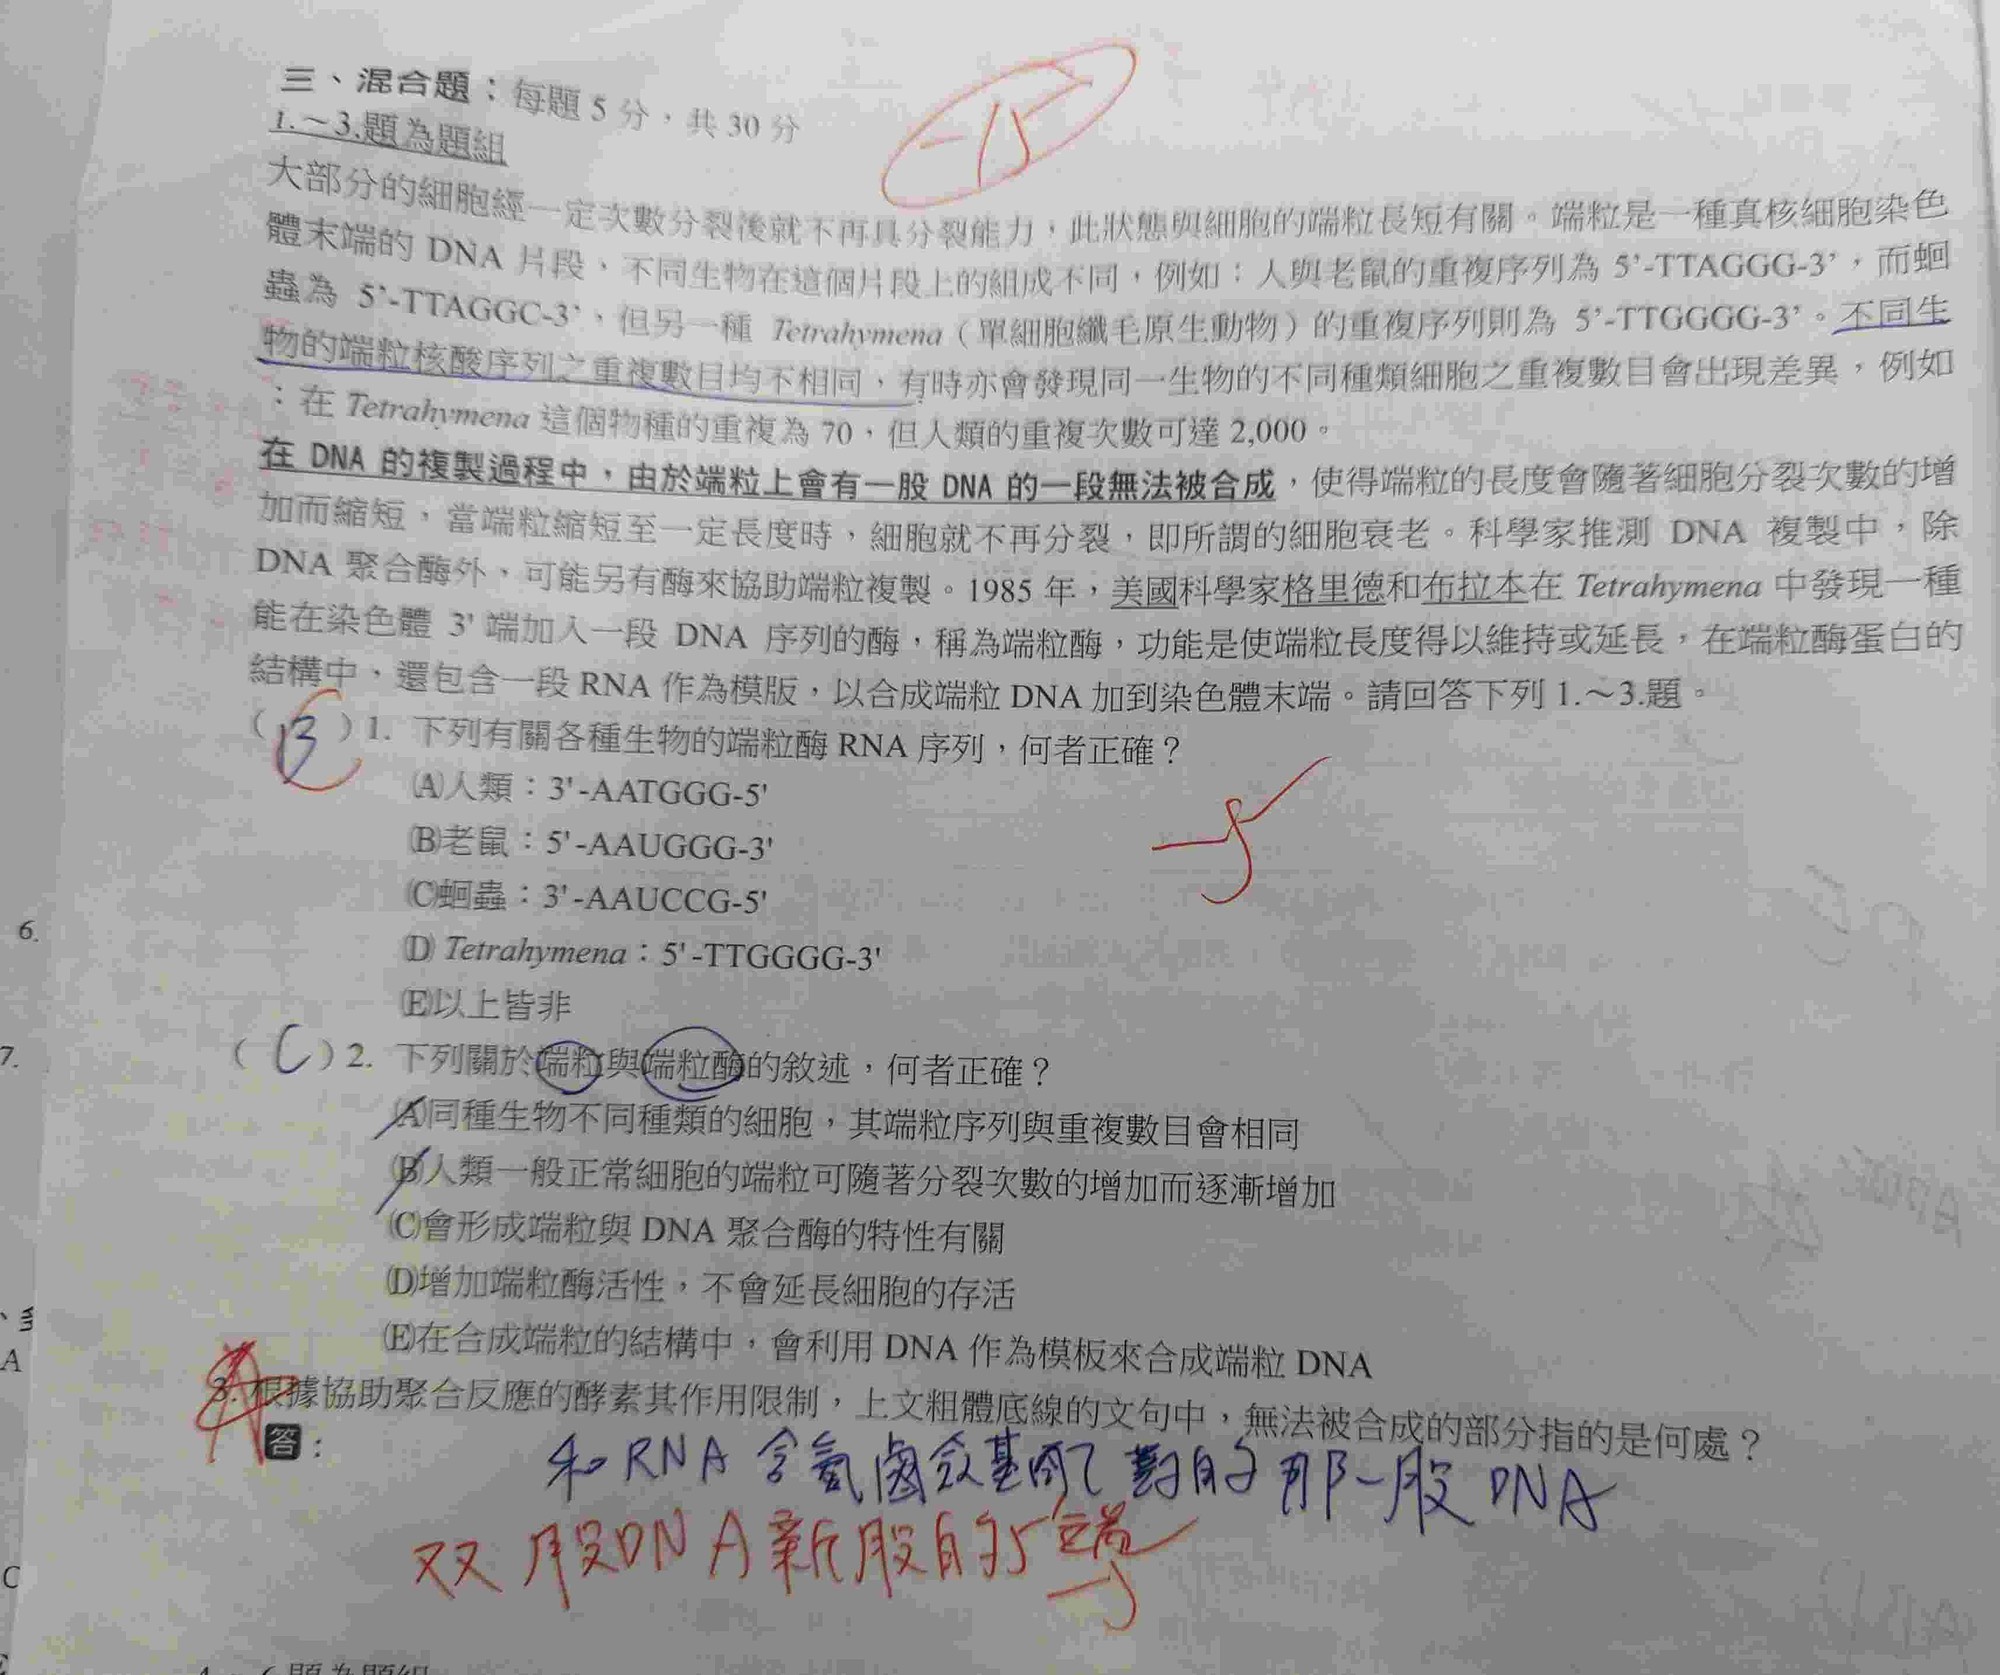 三、混合題：每題 5 分，共 30 分
-15
1.～3.題為題組
大部分的細胞經一定次數分裂後就不再具分裂能力，此狀態與細胞的端粒長短有關。端粒是一種真核細胞染色
體末端的 DNA 片段，不同生物在這個片段上的組成不同，例如：人與老鼠的重複序列為 5'-TTAGGG-3'，而蛔
蟲為 5'-TTAGGC-3'，但另一種 Tetrahymena（單細胞纖毛原生動物）的重複序列則為 5'-TTGGGG-3'。不同生
物的端粒核酸序列之重複數目均不相同，有時亦會發現同一生物的不同種類細胞之重複數目會出現差異，例如
：在 Tetrahymena 這個物種的重複為 70，但人類的重複次數可達 2,000。
在 DNA 的複製過程中，由於端粒上會有一股 DNA 的一段無法被合成，使得端粒的長度會隨著細胞分裂次數的增
加而縮短，當端粒縮短至一定長度時，細胞就不再分裂，即所謂的細胞衰老。科學家推測 DNA 複製中，除
DNA 聚合酶外，可能另有酶來協助端粒複製。1985 年，美國科學家格里德和布拉本在 Tetrahymena 中發現一種
能在染色體 3' 端加入一段 DNA 序列的酶，稱為端粒酶，功能是使端粒長度得以維持或延長，在端粒酶蛋白的
結構中，還包含一段 RNA 作為模版，以合成端粒 DNA 加到染色體末端。請回答下列 1.～3.題。
（ B ）1. 下列有關各種生物的端粒酶 RNA 序列，何者正確？
(A)人類：3'-AATGGG-5'
(B)老鼠：5'-AAUGGG-3'
-5
(C)蛔蟲：3'-AAUCCG-5'
(D) Tetrahymena：5'-TTGGGG-3'
(E)以上皆非
（ C ）2. 下列關於端粒與端粒酶的敘述，何者正確？
(A)同種生物不同種類的細胞，其端粒序列與重複數目會相同
(B)人類一般正常細胞的端粒可隨著分裂次數的增加而逐漸增加
(C)會形成端粒與 DNA 聚合酶的特性有關
(D)增加端粒酶活性，不會延長細胞的存活
(E)在合成端粒的結構中，會利用 DNA 作為模板來合成端粒 DNA
3. 根據協助聚合反應的酵素其作用限制，上文粗體底線的文句中，無法被合成的部分指的是何處？
答：
和RNA含氮鹵鹼基配對的那一股DNA
双股DNA新股的5'端
6.
7.
A
C